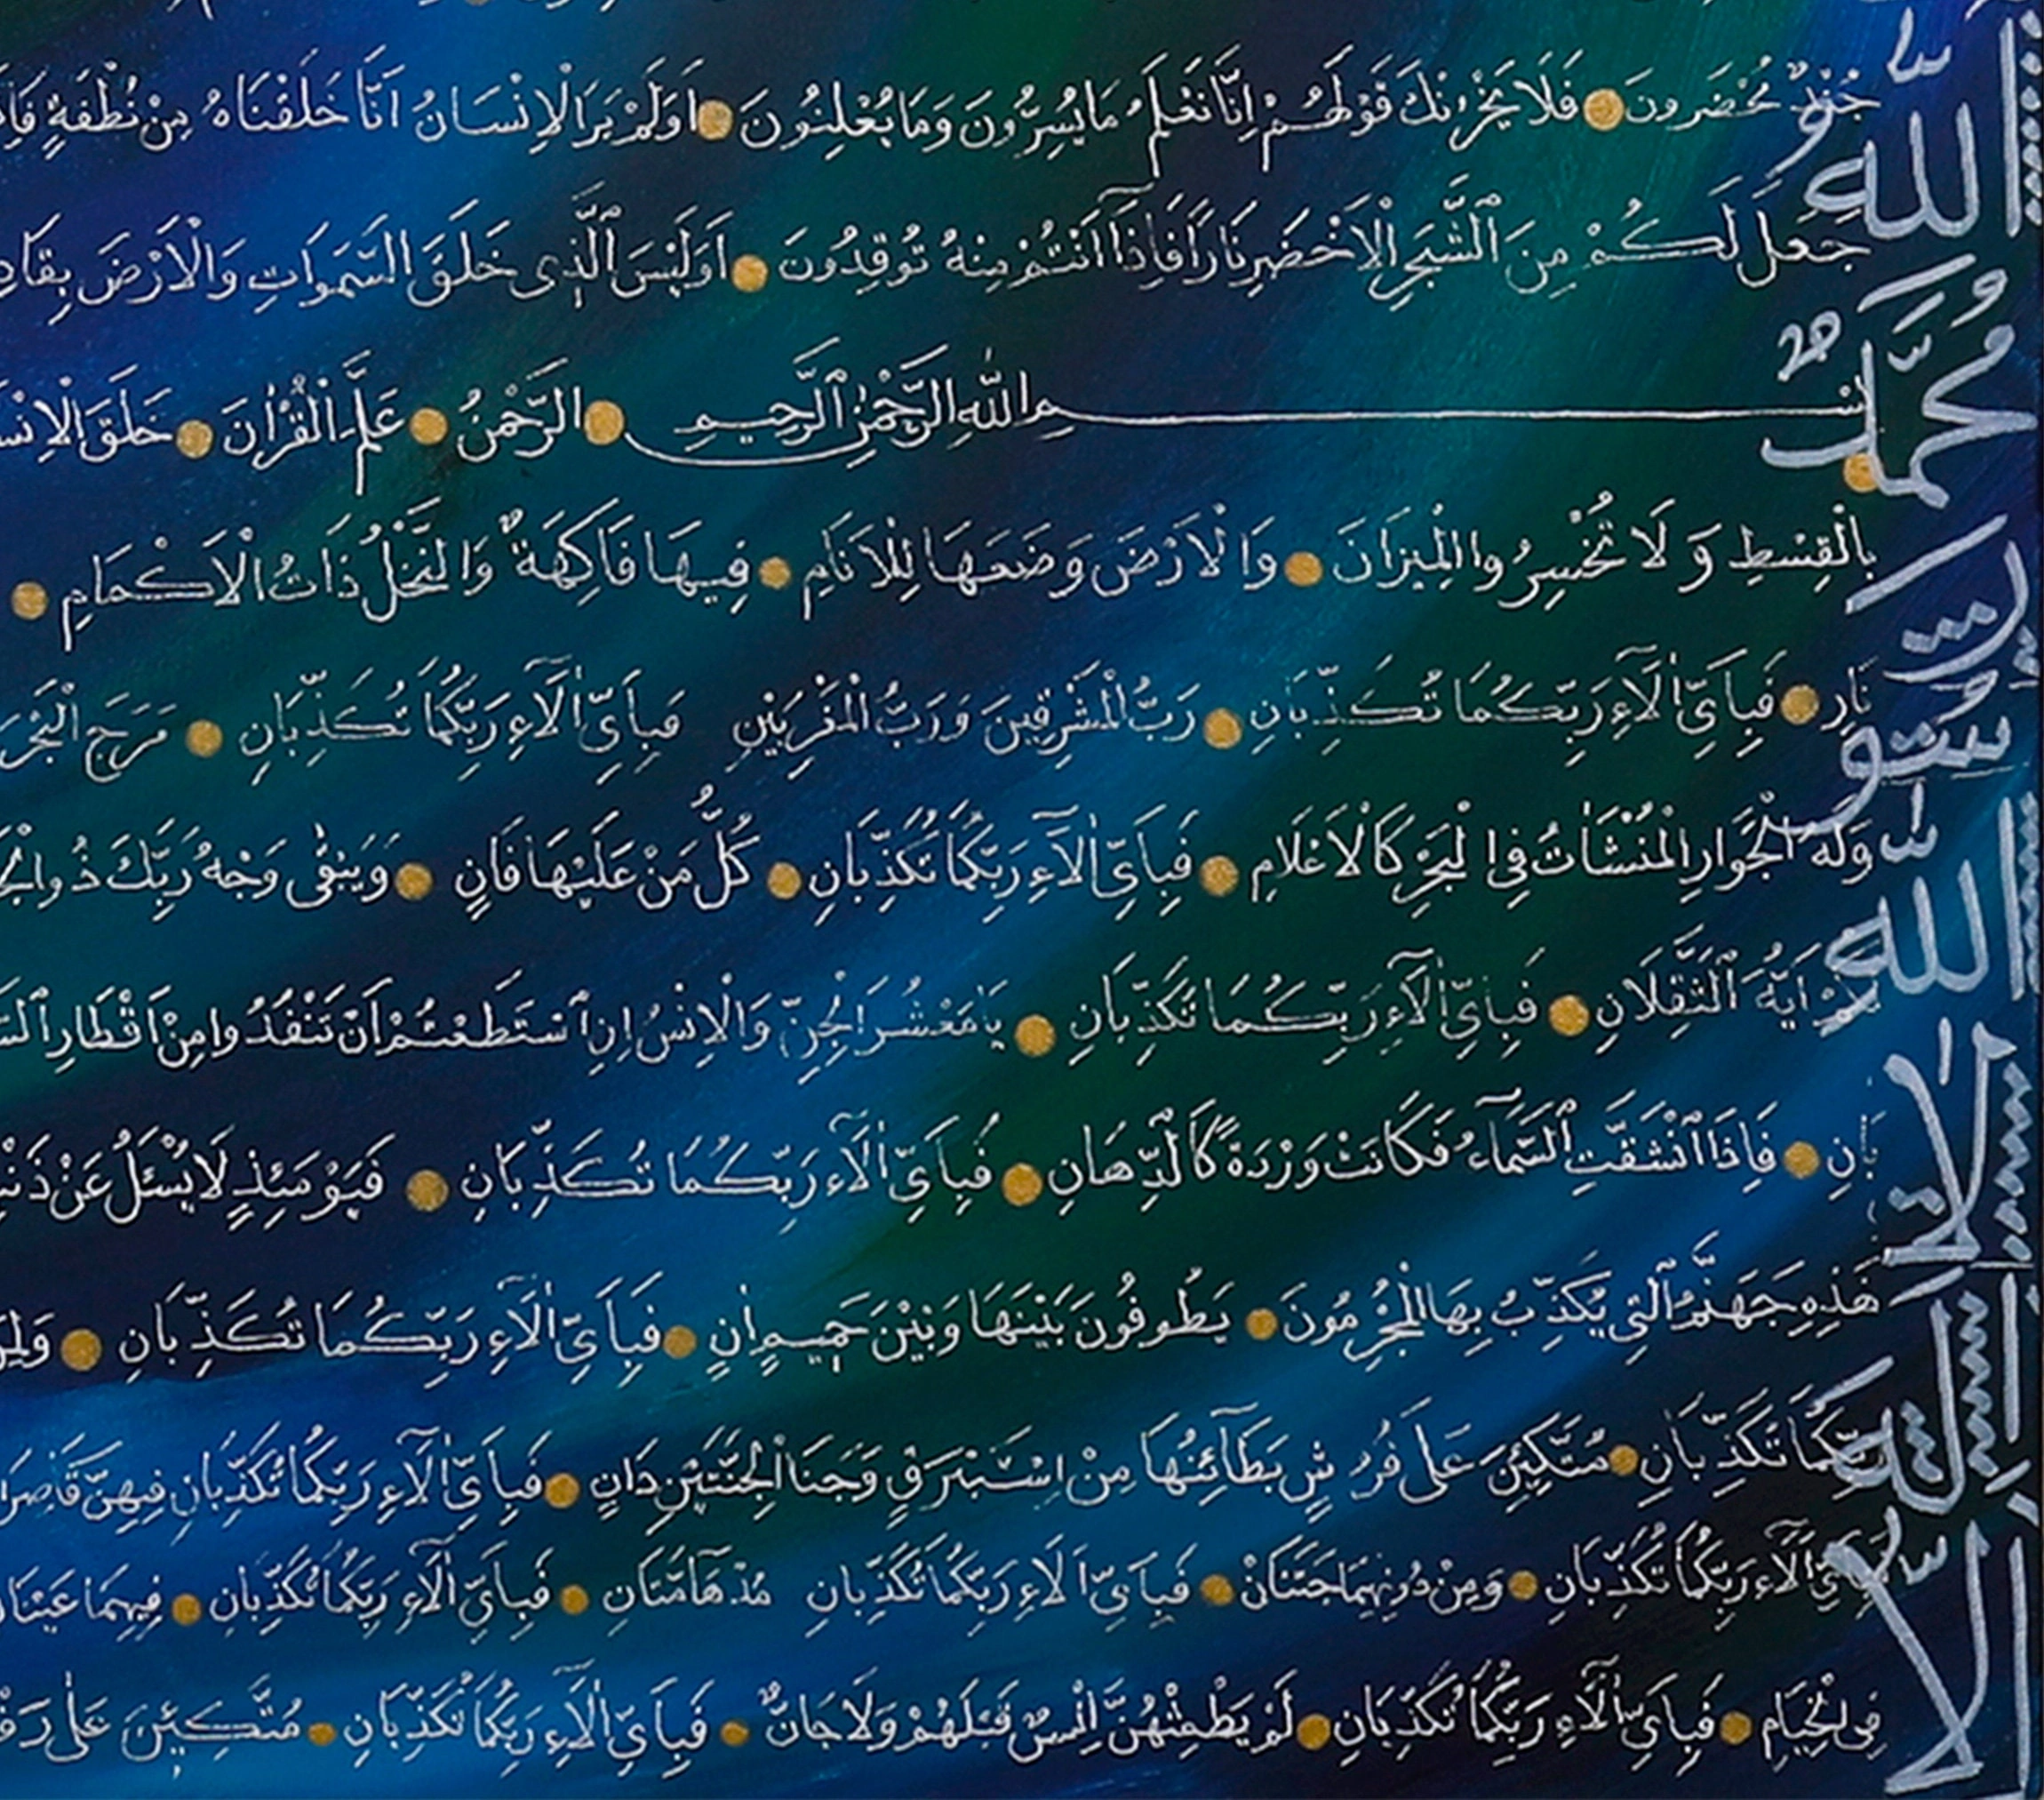 جُنْدٌ مُحْضَرُونَ فَلَا يَحْزُنْكَ قَوْلُهُمْ اِنَّا نَعْلَمُ مَا يُسِرُّونَ وَمَا يُعْلِنُونَ اَوَلَمْ يَرَ الْاِنْسَانُ اَنَّا خَلَقْنَاهُ مِنْ نُطْفَةٍ
جَعَلَ لَكُمْ مِنَ الشَّجَرِ الْاَخْضَرِ نَارًا فَاِذَا اَنْتُمْ مِنْهُ تُوقِدُونَ اَوَلَيْسَ الَّذِى خَلَقَ السَّمٰوَاتِ وَالْاَرْضَ
بسم اللّٰهِ الرَّحْمٰنِ الرَّحِيمِ الرَّحْمٰنُ عَلَّمَ الْقُرْاٰنَ خَلَقَ
بِالْقِسْطِ وَلَا تُخْسِرُوا الْمِيزَانَ وَالْاَرْضَ وَضَعَهَا لِلْاَنَامِ فِيهَا فَاكِهَةٌ وَالنَّخْلُ ذَاتُ الْاَكْمَامِ
نَارٍ فَبِاَىِّ اٰلَٓاءِ رَبِّكُمَا تُكَذِّبَانِ رَبُّ الْمَشْرِقَيْنِ وَرَبُّ الْمَغْرِبَيْنِ فَبِاَىِّ اٰلَٓاءِ رَبِّكُمَا تُكَذِّبَانِ مَرَجَ
وَلَهُ الْجَوَارِ الْمُنْشَاٰتُ فِى الْبَحْرِ كَالْاَعْلَامِ فَبِاَىِّ اٰلَٓاءِ رَبِّكُمَا تُكَذِّبَانِ كُلُّ مَنْ عَلَيْهَا فَانٍ وَيَبْقٰى وَجْهُ رَبِّكَ ذُو
اَيُّهَ الثَّقَلَانِ فَبِاَىِّ اٰلَٓاءِ رَبِّكُمَا تُكَذِّبَانِ يَا مَعْشَرَ الْجِنِّ وَالْاِنْسِ اِنِ اسْتَطَعْتُمْ اَنْ تَنْفُذُوا مِنْ اَقْطَارِ
بَانِ فَاِذَا انْشَقَّتِ السَّمَٓاءُ فَكَانَتْ وَرْدَةً كَالدِّهَانِ فَبِاَىِّ اٰلَٓاءِ رَبِّكُمَا تُكَذِّبَانِ فَيَوْمَئِذٍ لَا يُسْئَلُ عَنْ
هٰذِهِ جَهَنَّمُ الَّتِى يُكَذِّبُ بِهَا الْمُجْرِمُونَ يَطُوفُونَ بَيْنَهَا وَبَيْنَ حَمِيمٍ اٰنٍ فَبِاَىِّ اٰلَٓاءِ رَبِّكُمَا تُكَذِّبَانِ
رَبِّكُمَا تُكَذِّبَانِ مُتَّكِئِينَ عَلٰى فُرُشٍ بَطَٓائِنُهَا مِنْ اِسْتَبْرَقٍ وَجَنَا الْجَنَّتَيْنِ دَانٍ فَبِاَىِّ اٰلَٓاءِ رَبِّكُمَا تُكَذِّبَانِ فِيهِنَّ
اٰلَٓاءِ رَبِّكُمَا تُكَذِّبَانِ وَمِنْ دُونِهِمَا جَنَّتَانْ فَبِاَىِّ اٰلَاءِ رَبِّكُمَا تُكَذِّبَانِ مُدْهَٓامَّتَانِ فَبِاَىِّ اٰلَٓاءِ رَبِّكُمَا تُكَذِّبَانِ فِيهِمَا
فِى الْخِيَامِ فَبِاَىِّ اٰلَٓاءِ رَبِّكُمَا تُكَذِّبَانِ لَمْ يَطْمِثْهُنَّ اِنْسٌ قَبْلَهُمْ وَلَا جَانٌّ فَبِاَىِّ اٰلَٓاءِ رَبِّكُمَا تُكَذِّبَانِ مُتَّكِئِينَ عَلٰى
اللّٰه
مُحَمَّدٌ
رَسُول
اللّٰه